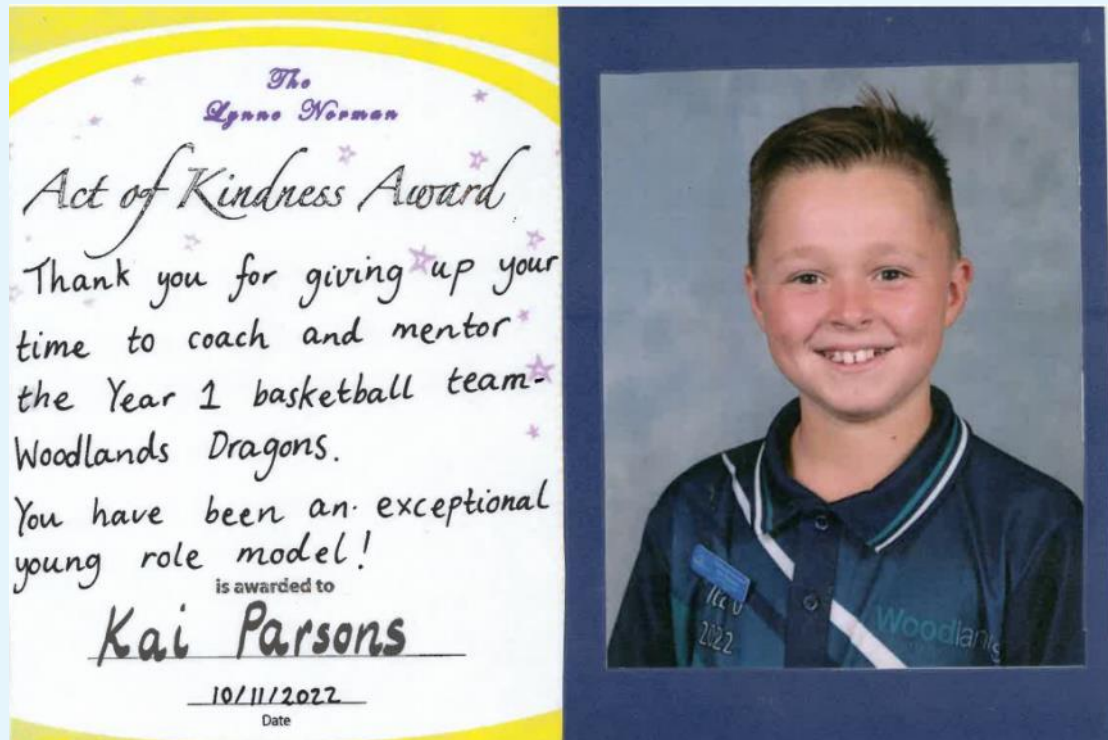 The
Lynne Norman
Act of Kindness Award
Thank you for giving up your
time to coach and mentor
the Year 1 basketball team-
Woodlands Dragons.
You have been an exceptional
young role model!
is awarded to
Kai Parsons
10/11/2022
Date
2022
Woodlands